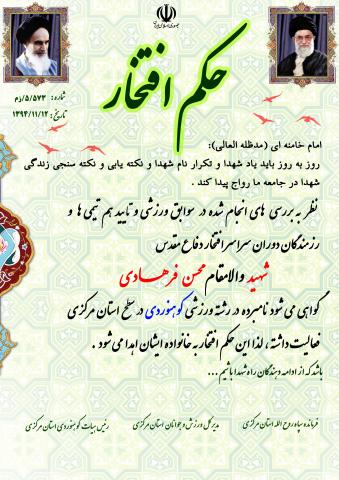 جمهوری اسلامی ایران
حکم افتخار
شماره: ۵/۵۷۳/زم
تاریخ: ۱۳۹۴/۱۱/۱۲
امام خامنه ای (مدظله العالی):
روز به روز باید یاد شهدا و تکرار نام شهدا و نکته یابی و نکته سنجی زندگی
شهدا در جامعه ما رواج پیدا کند .
نظر به بررسی های انجام شده در سوابق ورزشی و تایید هم تیمی ها و
رزمندگان دوران سراسر افتخار دفاع مقدس
شهید والامقام محسن فرهادی
گواهی می شود نامبرده در رشته ورزشی کوهنوردی در سطح استان مرکزی
فعالیت داشته ، لذا این حکم افتخار به خانواده ایشان اهدا می شود .
باشد که از ادامه دهندگان راه شهدا باشیم...
فرمانده سپاه روح الله استان مرکزی
مدیر کل ورزش و جوانان استان مرکزی
رئیس هیات کوهنوردی استان مرکزی